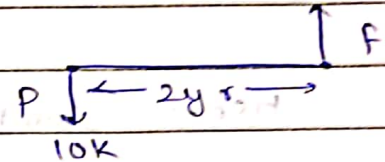 F
P 2yr.
10K